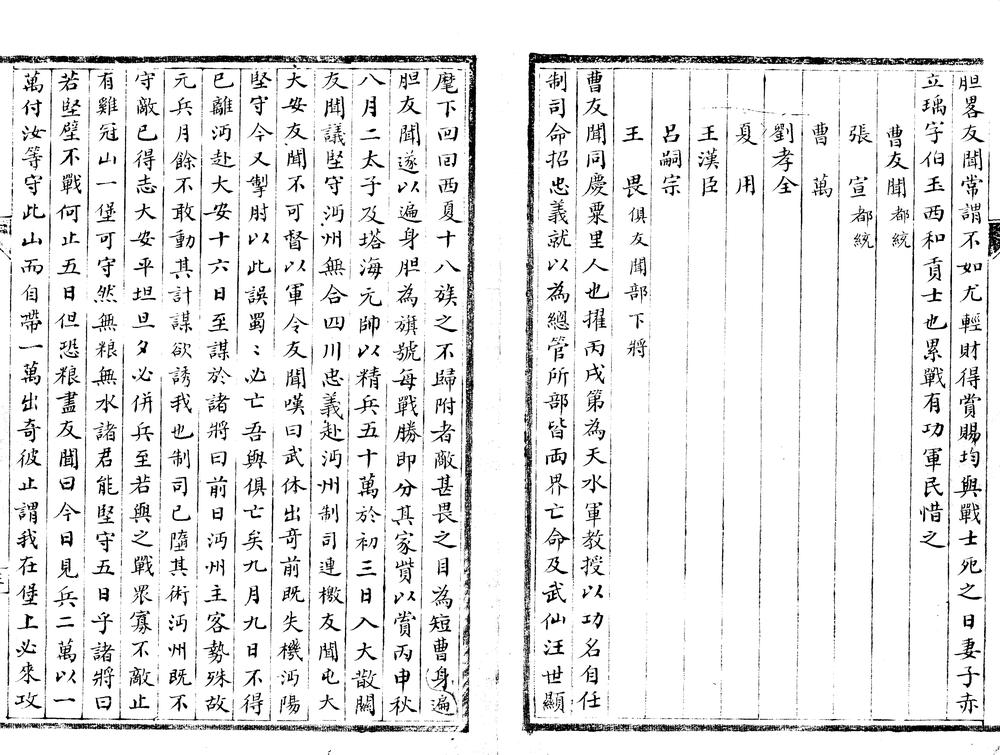 胆畧友聞常謂不如尤輕財得賞賜均與戰士死之日妻子赤
立瑀字伯玉西和貢士也累戰有功軍民惜之
曹友聞都統
張宣都統
曹萬
劉孝全
夏用
王漢臣
呂嗣宗
王畏俱友聞部下將
曹友聞同慶粟里人也擢丙戌第為天水軍教授以功名自任
制司命招忠義就以為總管所部皆兩界亡命及武仙汪世顯
麾下回回西夏十八族之不歸附者敵甚畏之目為短曹身遍
胆友聞遂以遍身胆為旗號每戰勝即分其家貲以賞丙申秋
八月二太子及塔海元帥以精兵五十萬於初三日入大散關
友聞議堅守沔州無合四川忠義赴沔州制司連檄友聞屯大
大安友聞不可督以軍令友聞嘆曰武休出奇前既失機沔陽
堅守今又掣肘以此誤蜀〻必亡吾與俱亡矣九月九日不得
已離沔赴大安十六日至謀於諸將曰前日沔州主客勢殊故
元兵月餘不敢動其計謀欲誘我也制司已隨其術沔州既不
守敵已得志大安平坦旦夕必併兵至若與之戰眾寡不敵止
有雞冠山一堡可守然無粮無水諸君能堅守五日乎諸將曰
若堅壁不戰何止五日但恐粮盡友聞曰今日見兵二萬以一
萬付汝等守此山而自帶一萬出奇彼止謂我在堡上必來攻